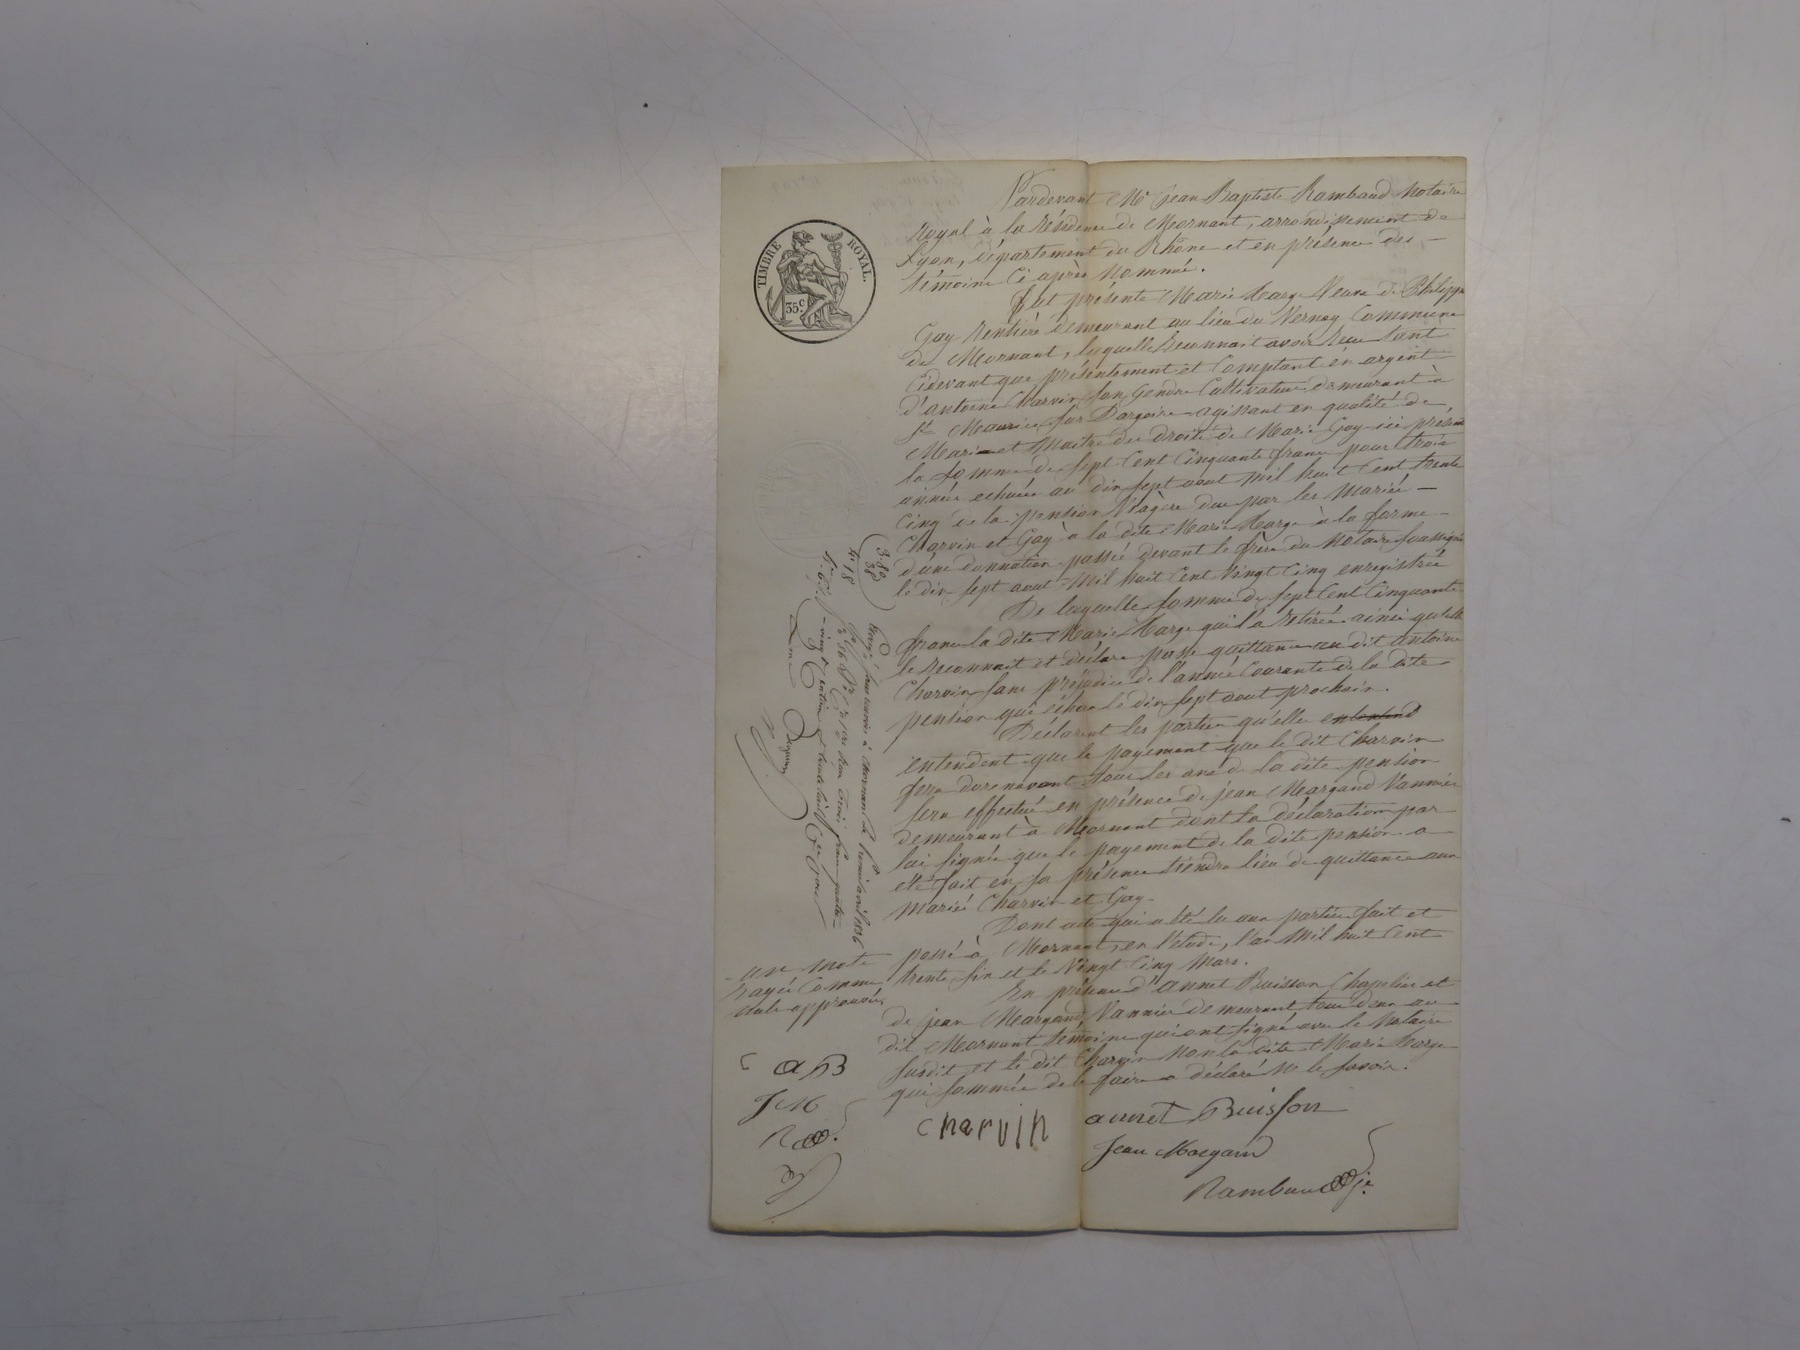 TIMBRE ROYAL.
35.c
Pardevant Me Jean Baptiste Rambaud Notaire
Royal à la résidence de Mornant, arrondissement de
Lyon, département du Rhône et en présence des
témoins ci après nommés.
fut présente Marie Marge Veuve de Philippe
Gay Rentière demeurant au lieu du Vernay Commune
de Mornant, laquelle Reconnait avoir Reçu tant
Cidevant que présentement et Comptant en argent
d'antoine Charvin son gendre Cultivateur demeurant à
St Maurice sur Dargoire agissant en qualité de
Mari et Maitre des droits de Marie Gay ici présent
la somme de sept Cent Cinquante francs pour trois
années echues au dix sept aout Mil huit Cent trente
Cinq de la pention Viagère due par les Mariés
Charvin et Gay à la dite Marie Marge à la forme
d'une donnation passée devant le frère du Notaire soussigné
le dix sept aout Mil huit Cent Vingt Cinq enregistrée
De laquelle somme de sept Cent Cinquante
francs la dite Marie Marge qui l'a Retirée ainsi qu'elle
le Reconnait et déclare passe quittance au dit antoine
Charvin sans préjudice de l'année Courante de la dite
pention qui échoie le dix sept aout prochain.
Déclarent les parties qu'elle entendend
entendent que le payement que le dit Charvin
fera dorenavant tous les ans de la dite pention
sera effectué en présence de jean Margand Vannier
demeurant à Mornant dont la déclaration par
lui signée que le payement de la dite pention a
été fait en sa présence tiendra lieu de quittance aux
Mariés Charvin et Gay.
Dont acte qui a été lu aux parties fait et
passé à Mornant, en l'étude, l'an Mil huit Cent
trente six et le Vingt Cinq Mars.
En présence d'annet Buisson Chapelier et
de jean Margand Vannier demeurant tous deux au
dit Mornant témoins qui ont signé avec le Notaire
susdit et le dit Charvin Non la dite Marie Marge
qui sommée de le faire a déclaré Ne le savoir.
un mot
Rayé Comme
nul approuvé
AB
JM
charvin
annet Buisson
Jean Margand
Rambaud je
3.80
38
4.18